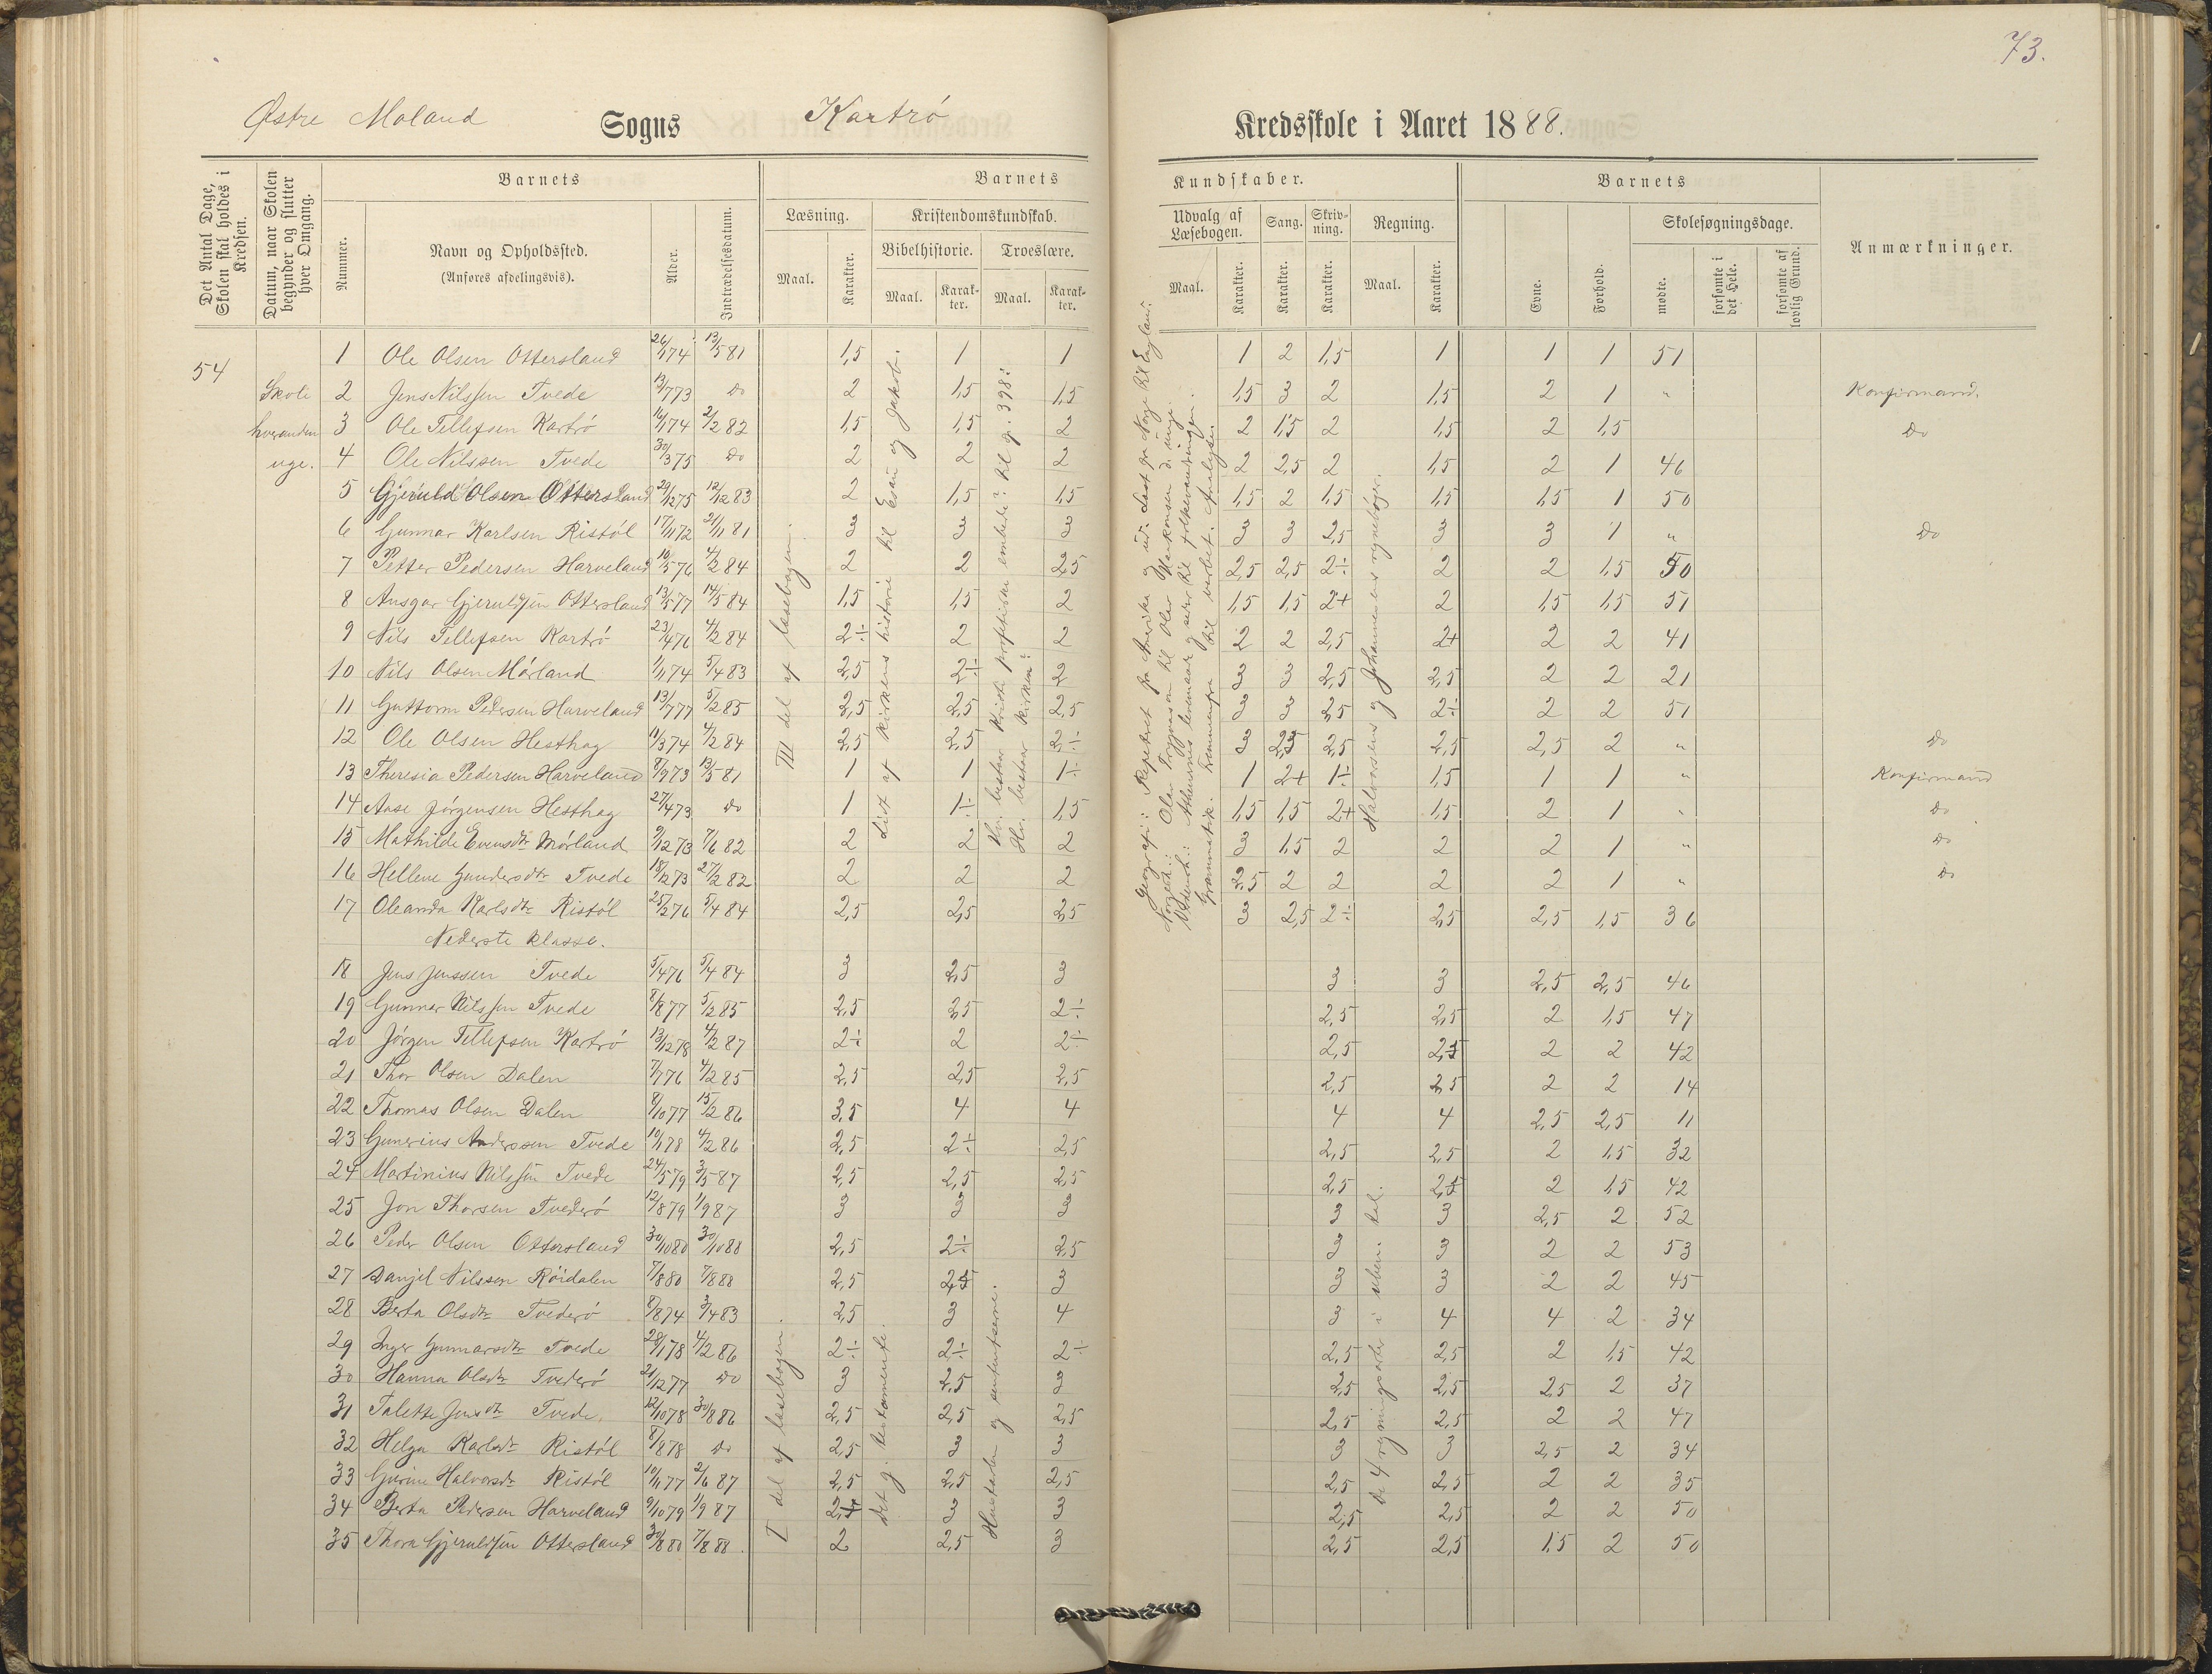 73.
Østre Moland Sogns Kartrö Kredsskole i Aaret 1888.
Det Antal Dage, Skolen skal holdes i Kredsen.
Datum, naar Skolen begynder og slutter hver Omgang.
Nummer.
Barnets
Navn og Opholdssted.
(Anføres afdelingsvis).
Alder.
Indtrædelsesdatum.
Barnets Kundskaber.
Læsning.
Maal.
Karakter.
Kristendomskundskab.
Bibelhistorie.
Maal.
Karakter.
Troeslære.
Maal.
Karakter.
Udvalg af Læsebogen.
Maal.
Karakter.
Sang.
Karakter.
Skrivning.
Karakter.
Regning.
Maal.
Karakter.
Barnets
Evne.
Forhold.
Skolesøgningsdage.
mødte.
forsømte i det Hele.
forsømte af lovlig Grund.
Anmærkninger.
54
Skole hveranden uge.
1 Ole Olsen Ottersland 26/1 74 13/5 81 1,5 1 1 1 2 1,5 1 1 1 51
2 Jens Nilssen Tvede 13/7 73 Do 2 1,5 1,5 1,5 3 2 1,5 2 1 " Konfirmand.
3 Ole Tellefsen Kartrö 16/1 74 2/2 82 1,5 1,5 2 2 1,5 2 1,5 2 1,5 Do
4 Ole Nilssen Tvede 30/3 75 Do 2 2 2 2 2,5 2 1,5 2 1 46
5 Gjeruld Olsen Ottersland 29/12 75 12/12 83 2 1,5 1,5 1,5 2 1,5 1,5 1,5 1 50
6 Gunnar Karlsen Ristöl 17/11 72 21/11 81 3 3 3 3 3 2,5 3 3 1 " Do
7 Petter Pedersen Harveland 10/5 76 4/2 84 2 2 2,5 2,5 2,5 2÷ 2 2 1,5 50
8 Ansgar Gjeruldsen Ottersland 13/5 77 14/5 84 1,5 1,5 2 1,5 1,5 2+ 2 1,5 1,5 51
9 Nils Tellefsen Kartrö 23/4 76 4/2 84 2÷ 2 2 2 2 2,5 2+ 2 2 41
10 Nils Olsen Mörland 1/1 74 5/4 83 2,5 2÷ 2 3 3 2,5 2,5 2 2 21
11 Guttorm Pedersen Harveland 13/7 77 5/2 85 2,5 2,5 2,5 3 3 2,5 2÷ 2 2 51
12 Ole Olsen Hesthag 11/3 74 4/2 84 2,5 2,5 2÷ 3 2,5 2,5 2,5 2,5 2 " Do
13 Theresia Pedersen Harveland 8/9 73 13/5 81 1 1 1÷ 1 2+ 1÷ 1,5 1 1 " Konfirmand
14 Aase Jörgensen Hesthag 27/4 73 Do 1 1÷ 1,5 1,5 1,5 2+ 1,5 2 1 " Do
15 Mathilde Evensdtr Mörland 9/12 73 7/6 82 2 2 2 3 1,5 2 2 2 1 " Do
16 Hellene Gundersdtr Tvede 18/12 73 27/2 82 2 2 2 2,5 2 2 2 2 1 " Do
17 Oleanda Karlsdtr Ristöl 25/2 76 5/4 84 2,5 2,5 2,5 3 2,5 2÷ 2,5 2,5 1,5 36
Nederste klasse.
18 Jens Jenssen Tvede 5/4 76 5/4 84 3 2,5 3 3 3 2,5 2,5 46
19 Gunnar Nilssen Tvede 8/8 77 5/2 85 2,5 2,5 2÷ 2,5 2,5 2 1,5 47
20 Jörgen Tellefsen Kartrö 13/12 78 4/2 87 2÷ 2 2÷ 2,5 2,5 2 2 42
21 Thor Olsen Dalen 7/7 76 4/2 85 2,5 2,5 2,5 2,5 2,5 2 2 14
22 Thomas Olsen Dalen 8/10 77 15/2 86 3,5 4 4 4 4 2,5 2,5 11
23 Gunerius Anderssen Tvede 10/1 78 4/2 86 2,5 2÷ 2,5 2,5 2,5 2 1,5 32
24 Martinius Nilssen Tvede 24/5 79 3/5 87 2,5 2,5 2,5 2,5 2,5 2 1,5 42
25 Jon Thorsen Tvederö 12/8 79 1/9 87 3 3 3 3 3 2,5 2 52
26 Peder Olsen Ottersland 30/10 80 30/10 88 2,5 2÷ 2,5 3 3 2 2 53
27 Danjel Nilssen Röidalen 7/8 80 7/8 88 2,5 2,5 3 3 3 2 2 45
28 Berta Olsdtr Tvederö 8/8 74 3/4 83 2,5 3 4 3 4 4 2 34
29 Inger Gunnarsdtr Tvede 28/1 78 4/2 86 2÷ 2÷ 2÷ 2,5 2,5 2 1,5 42
30 Hanna Olsdtr Tvederö 21/12 77 Do 3 2,5 3 2,5 2,5 2,5 2 37
31 Talette Jensdtr Tvede 12/10 78 30/8 86 2,5 2,5 2,5 2,5 2,5 2 2 47
32 Helga Karlsdtr Ristöl 8/8 78 Do 2,5 3 3 3 3 2,5 2 34
33 Gurine Halvorsdtr Ristöl 10/1 77 2/6 87 2,5 2,5 2,5 2,5 2,5 2 2 35
34 Berta Pedersen Harveland 9/10 79 1/9 87 2,5 3 3 2,5 2,5 2 2 50
35 Thora Gjeruldsen Ottersland 30/8 80 7/8 88 2 2,5 3 2,5 2,5 1,5 2 50
III del af læsebogen.
Lidt af kirkens historie til Esau og Jakob.
Hv. bestaar Kristi profetiske embede? til sp. 398:
Hv. bestaar kirken?
Geografi: Repeteret fra Amerika og ud. Læst fra Norge til England:
Norgesh.: Olav Trygvason til Olav Haakonsen d. unge.
Verdensh.: Athenernes levemaade og seder til folkevandringen.
Grammatik. Fremmenfra til verbet. Analyse.
Halvorsens og Johannesens regnebøger.
I del af læsebogen.
Det g. testamente.
Hustavlen og sentenserne.
De 4 regningsarter i uben. tal.